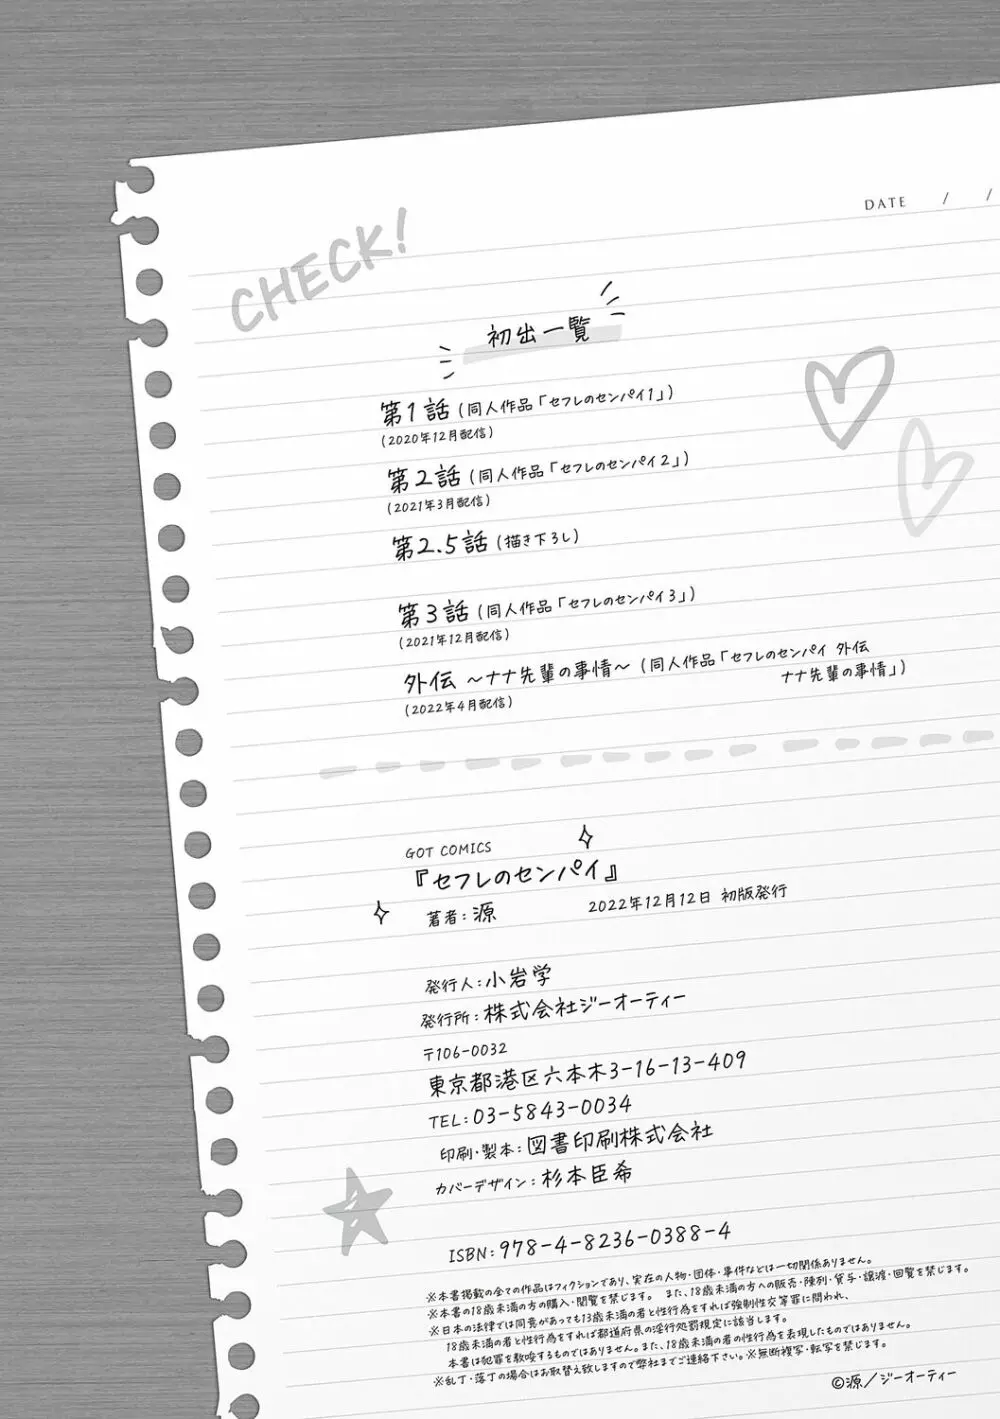 DATE / /
CHECK!
初出一覧
第1話(同人作品「セフレのセンパイ1」)
(2020年12月配信)
第2話(同人作品「セフレのセンパイ2」)
(2021年3月配信)
第2.5話(描き下ろし)
第3話(同人作品「セフレのセンパイ3」)
(2021年12月配信)
外伝 ～ナナ先輩の事情～(同人作品「セフレのセンパイ 外伝
ナナ先輩の事情」)
(2022年4月配信)
GOT COMICS
『セフレのセンパイ』
著者:源 2022年12月12日 初版発行
発行人:小岩学
発行所:株式会社ジーオーティー
〒106-0032
東京都港区六本木3-16-13-409
TEL:03-5843-0034
印刷・製本:図書印刷株式会社
カバーデザイン:杉本臣希
ISBN:978-4-8236-0388-4
※本書掲載の全ての作品はフィクションであり、実在の人物・団体・事件などは一切関係ありません。
※本書の18歳未満の方の購入・閲覧を禁じます。 また、18歳未満の方への販売・陳列・貸与・譲渡・回覧を禁じます。
※日本の法律では同意があっても13歳未満の者と性行為をすれば強制性交等罪に問われ、
18歳未満の者と性行為をすれば都道府県の淫行処罰規定に該当します。
本書は犯罪を教唆するものではありません。また、18歳未満の者の性行為を表現したものではありません。
※乱丁・落丁の場合はお取替え致しますので弊社までご連絡下さい。※無断複写・転写を禁じます。
©源/ジーオーティー